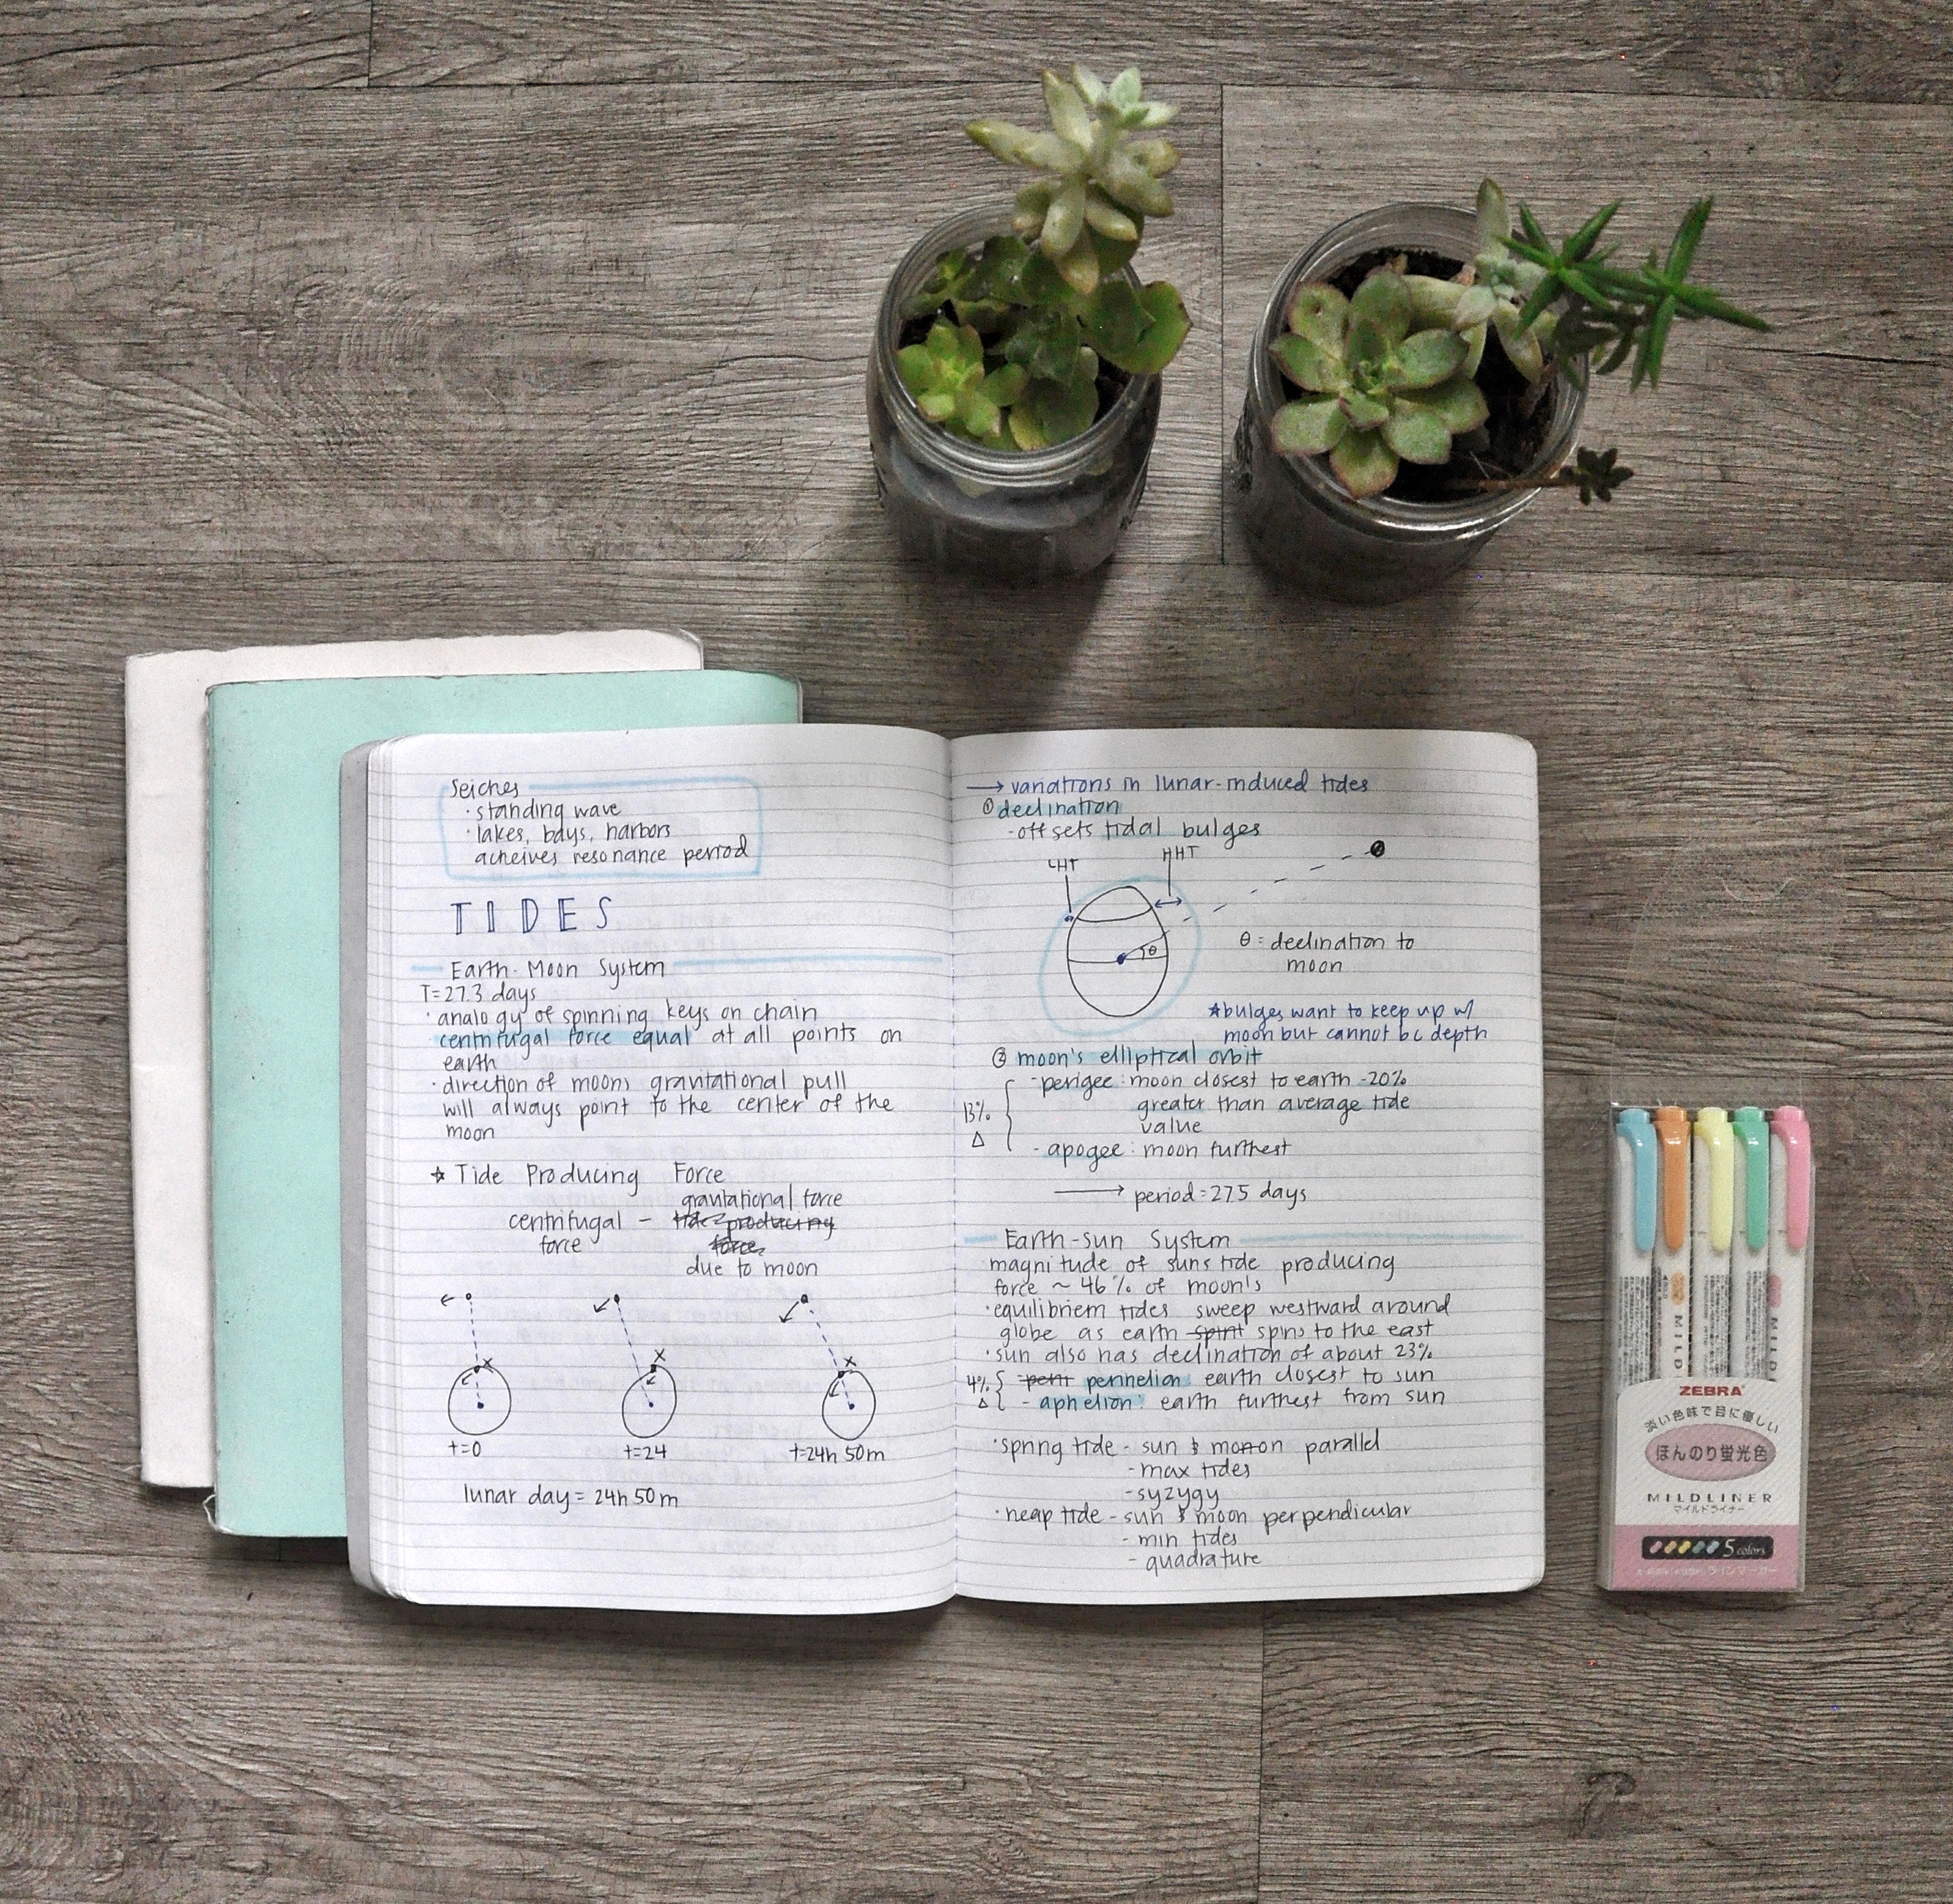 Seiches
· standing wave
· lakes, bays, harbors
acheives resonance period
TIDES
Earth-Moon System
T=27.3 days
· analogy of spinning keys on chain
centrifugal force equal at all points on
earth
· direction of moons gravitational pull
will always point to the center of the
moon
☆ Tide Producing Force
gravitational force
centrifugal - tide producing
force force
due to moon
x x x
t=0 t=24 t=24h 50m
lunar day = 24h 50m
→ variations in lunar-induced tides
① declination
- offsets tidal bulges
LHT HHT
θ
θ = declination to
moon
☆bulges want to keep up w/
moon but cannot bc depth
② moon's elliptical orbit
- perigee: moon closest to earth -20%
13% greater than average tide
value
Δ - apogee: moon furthest
→ period = 27.5 days
Earth-sun System
magnitude of suns tide producing
force ~ 46% of moon's
· equilibriem tides sweep westward around
globe as earth spint spins to the east
· sun also has declination of about 23%
4% { peri perihelion: earth closest to sun
Δ - aphelion: earth furthest from sun
· spring tide - sun & momoon parallel
- max tides
- syzygy
· neap tide - sun & moon perpendicular
- min tides
- quadrature
ZEBRA
淡い色味で目に優しい
ほんのり蛍光色
MILDLINER
マイルドライナー
5 colors
ラインマーカー